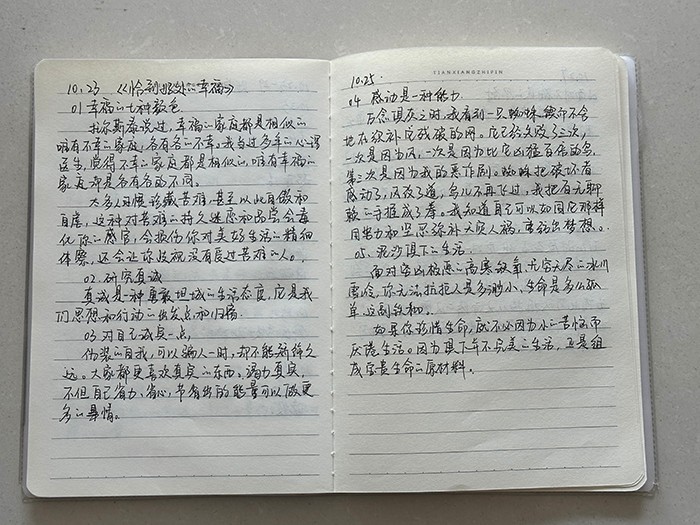 10.23 《恰到好处的幸福》
01 幸福的七种颜色
托尔斯泰说过,幸福的家庭都是相似的
唯有不幸的家庭,各有各的不幸。我当过多年的心理
医生,觉得不幸的家庭都是相似的,唯有幸福的
家庭却是各有各的不同。
大多人习惯珍藏苦难,甚至以此自傲和
自虐,这种对苦难的持久迷恋和品尝会毒
化你的感官,会损伤你对美好生活的精细
体察,还会让你歧视没有受过苦难的人。
02. 研究真诚
真诚是一种勇敢坦城的生活态度,它是我
们思想和行动的出发点和归宿
03 对自己诚实一点,
伪装的自我,可以骗人一时,却不能新终久
远。大家都更喜欢真实的东西。竭力真实,
不但自己省力、省心,节省出的能量可以做更
多的事情。
TIANXIANGZHIPIN
10.25.
04 感动是一种能力
万念俱灰之时,我看到一只蜘蛛,锲而不舍
地在织补它残破的网。它已经失败了三次,
一次是因为风,一次是因为比它凶猛百倍的鸟,
第三次是因为我的恶作剧。蜘蛛把破坏者
感动了,风改了道,鸟儿不再飞过,我把百无聊
赖的手握成了拳。我知道自己可以如同它那样
用努力和坚忍弥补天灾人祸,重新出梦想。
05. 泥沙俱下的生活
面对穷凶极恶的高寒缺氧,无穷无尽的冰川
雪岭,你无法抗拒人是多渺小、生命是多么孤
单这副铁枷。
如果你珍惜生命,就不必因为小的苦恼而
厌倦生活。因为泥下车不完美的生活,正是组
成宝贵生命的原材料。